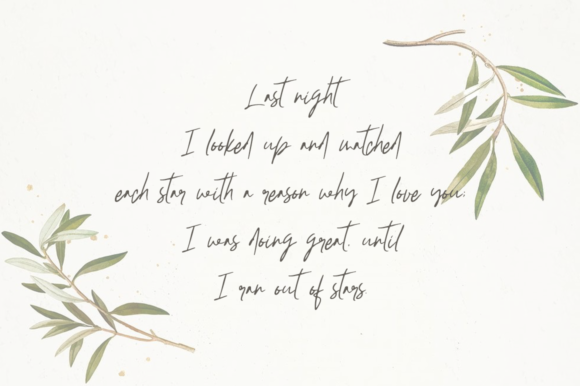 Last night
I looked up and matched
each star with a reason why I love you.
I was doing great, until
I ran out of stars.